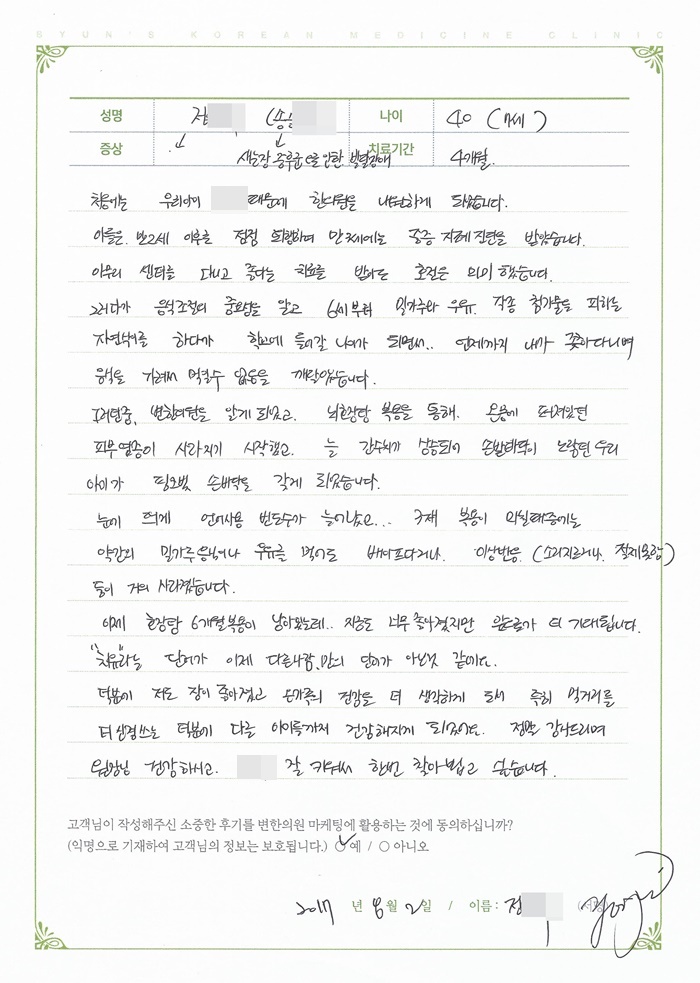 BYUN'S KOREAN MEDICINE CLINIC
성명 정 (송 나이 40 ( 세 )
증상 새는장 증후군으로 인한 발달장애 치료기간 4개월.
처음에는 우리아이 때문에 한의원을 내원하게 되었습니다.
아들은 만2세 이후로 점점 퇴행하여 만 3세에는 중증 자폐 진단을 받았습니다.
아무리 센터를 다니고 좋다는 치료를 받아도 호전은 미미 했습니다.
그러다가 음식조절의 중요성을 알고 6세부터 밀가루와 우유. 각종 첨가물을 피하는
자연식이를 하다가 학교에 들어갈 나이가 되면서.. 언제까지 내가 쫓아다니며
음식을 가려서 먹일수 없음을 깨달았습니다.
그러던중, 변한의원을 알게 되었고. 복용을 통해. 온몸에 퍼져있던
피부염증이 사라지기 시작했고. 늘 간수치가 상승되어 손발바닥이 노랗던 우리
아이가 핑크빛 손바닥을 갖게 되었습니다.
눈에 띄게 언어사용 빈도수가 늘어났고... 규제 복용이 외식때중에는
약간의 밀가루음식이나 우유를 먹어도 배아프다거나. 이상반응. (소리지르거나. 절제못함)
들이 거의 사라졌습니다.
이제 6개월복용이 남아있는데.. 지금도 너무 좋아졌지만 앞으로가 더 기대됩니다.
"치유"라는 단어가 이제 다른사람만의 단어가 아닌것 같네요.
덕분에 저도 장이 좋아졌고 온가족의 건강을 더 생각하게 되어 특히 먹거리를
더 신경쓰는 덕분에 다른 아이들까지 건강해지게 되었어요. 정말 감사드리며
원장님 건강하시고. 잘 키워서 한번 찾아뵙고 싶습니다.
고객님이 작성해주신 소중한 후기를 변한의원 마케팅에 활용하는 것에 동의하십니까?
(익명으로 기재하여 고객님의 정보는 보호됩니다.) ○ 예 / ○ 아니오
2017 년 8월 2일 / 이름 : 정 (서명)